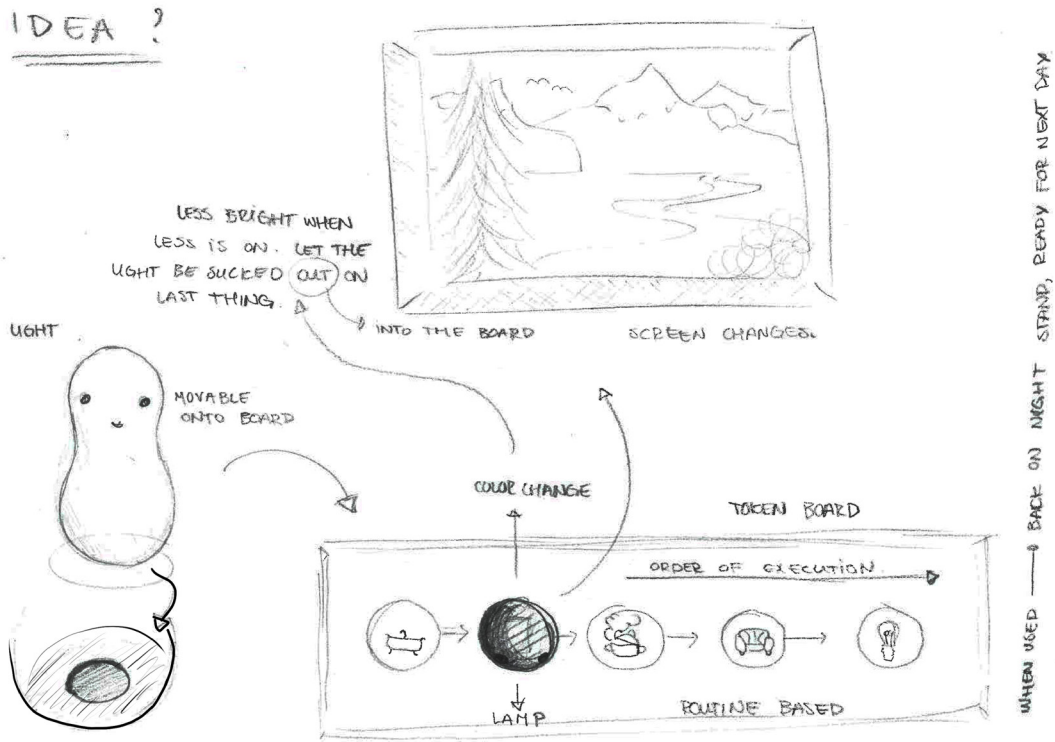 IDEA ?
LESS BRIGHT WHEN
LESS IS ON. LET THE
LIGHT BE SUCKED OUT ON
LAST THING.
INTO THE BOARD
SCREEN CHANGES.
LIGHT
MOVABLE
ONTO BOARD
COLOR CHANGE
TOKEN BOARD
ORDER OF EXECUTION
LAMP
ROUTINE BASED
WHEN USED → BACK ON NIGHT STAND, READY FOR NEXT DAY